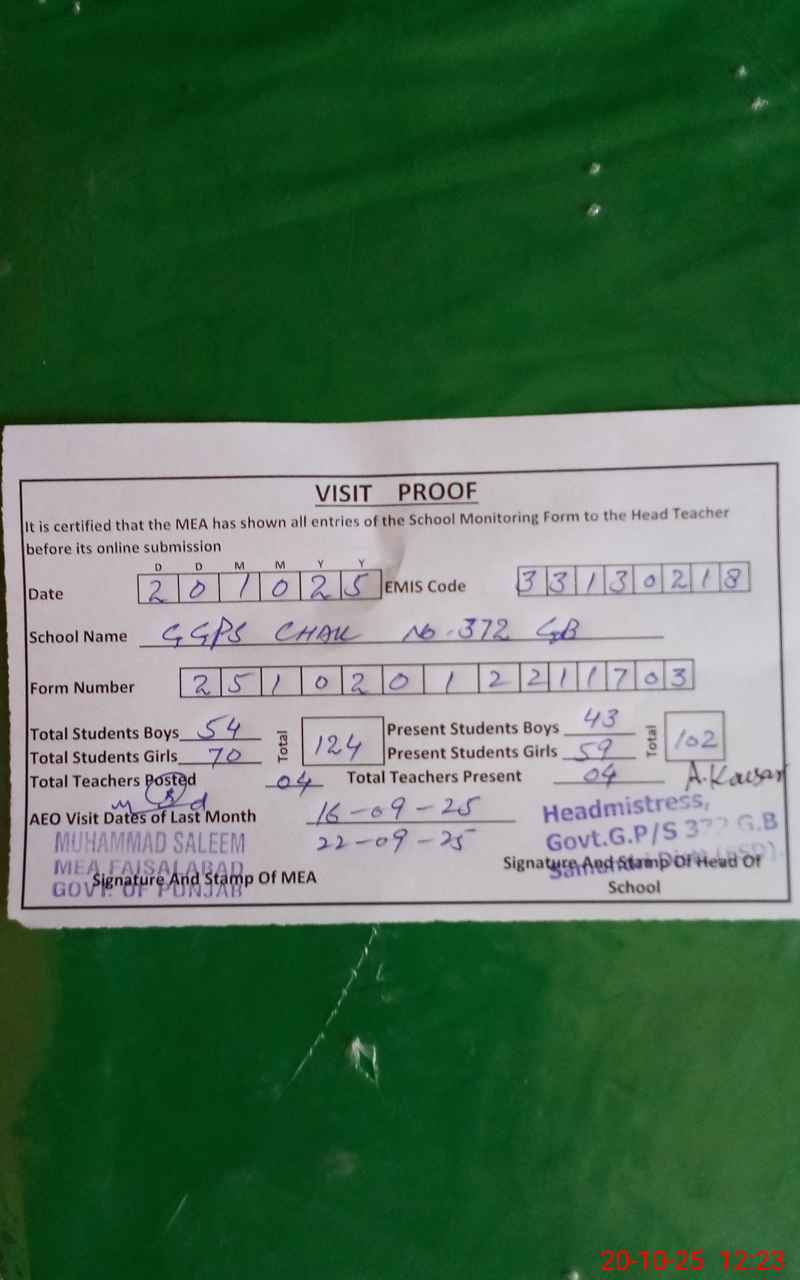 VISIT PROOF
It is certified that the MEA has shown all entries of the School Monitoring Form to the Head Teacher
before its online submission
D D M M Y Y
Date 2 0 1 0 2 5 EMIS Code 3 3 1 3 0 2 1 8
School Name GGPS CHAK No. 372 GB
Form Number 2 5 1 0 2 0 1 2 2 1 1 7 0 3
Total Students Boys 54 Total 124 Present Students Boys 43 Total 102
Total Students Girls 70 Present Students Girls 59
Total Teachers Posted 04 Total Teachers Present 04 A.Kousar
AEO Visit Dates of Last Month 16-09-25
22-09-25
MUHAMMAD SALEEM
MEA FAISALABAD
GOVT. OF PUNJAB
Signature And Stamp Of MEA
Headmistress,
Govt.G.P/S 372 G.B
Signature And Stamp Of Head Of
School
20-10-25 12:23